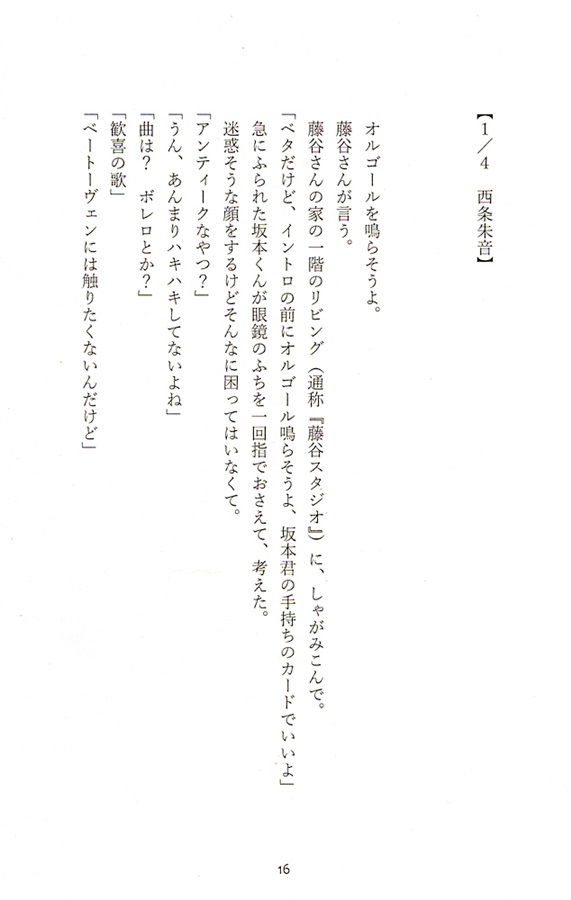 【１／４　西条朱音】
オルゴールを鳴らそうよ。
藤谷さんが言う。
藤谷さんの家の一階のリビング（通称『藤谷スタジオ』）に、しゃがみこんで。
「ベタだけど、イントロの前にオルゴール鳴らそうよ、坂本君の手持ちのカードでいいよ」
急にふられた坂本くんが眼鏡のふちを一回指でおさえて、考えた。
迷惑そうな顔をするけどそんなに困ってはいなくて。
「アンティークなやつ？」
「うん、あんまりハキハキしてないよね」
「曲は？　ボレロとか？」
「歓喜の歌」
「ベートーヴェンには触りたくないんだけど」
16